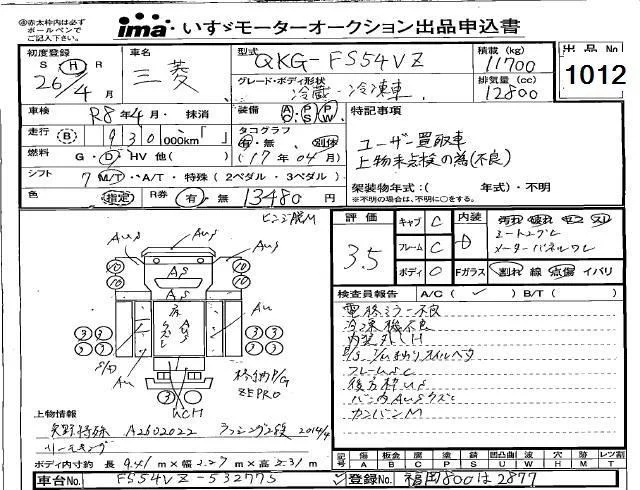 ima いすゞモーターオークション出品申込書
④赤太枠内は必ず
ボールペンで
ご記入下さい。
初度登録 S H R 26/4月
車名 三菱
型式 QKG-FS54VZ
グレード・ボディ形状 冷蔵・冷凍車
積載 (kg) 11700
排気量 (cc) 12800
出品No 1012
車検 R8年4月・抹消
装備 AC PS PW
特記事項
走行 B 930 000km「 」
タコグラフ 有・無 別体 (17年04月)
ユーザー買取車
上物未点検の為(不良)
燃料 G・D・HV 他( )
シフト 7 M/T・A/T・特殊(2ペダル・3ペダル)
架装物年式:( 年式)・不明
※不明の場合は、不明に○をする。
色 指定 R券 有・無 13480円
評価 3.5
キャブ C
フレーム C
ボディ C
内装 D
シートコゲ
メーターパネルワレ
Fガラス 割れ 線 点傷 イバリ
検査員報告 A/C( ✓ ) B/T( )
電格ミラー不良
冷凍機不良
内装外しH
フレームSC
後方枠US
カンバンM
AuS AuS
10 10 10 10
AS
AS
Au
S/D
Au
3 3 3 3
UCH
P/G
ZEPRO
上物情報
矢野特殊 A2602022 ラッシング2段 2014/4
ボディ内寸約 長 9.41 m×幅 2.27 m×高 2.31 m
記号 傷 板金 腐 塗油 錆 凹凸曲 波 穴 跡 レツ割
A B C P S U W H M T
車台No FS54VZ-532775
登録No 福岡800は2877